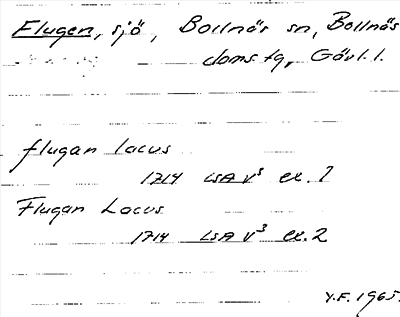 Flugen, sjö, Bollnäs sn, Bollnäs
doms.tg, Gävl.l.
flugan lacus
1714 LSA V³ ex. 1
Flugan Lacus
1714 LSA V³ ex. 2
Y.F. 1965.